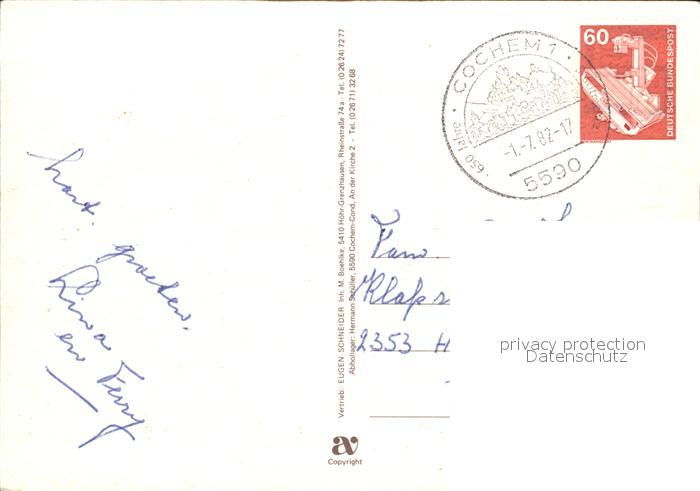 60
DEUTSCHE BUNDESPOST
COCHEM 1
650 Jahre
-1.-7.82-17
5590
hart. groeten,
Lina
en Ferry
Vertrieb: EUGEN SCHNEIDER Inh. M. Boehlke, 5410 Höhr-Grenzhausen, Rheinstraße 74a - Tel. (0 26 24) 72 77
Abhollager: Hermann Schüller, 5590 Cochem-Cond, An der Kirche 2 - Tel. (0 26 71) 32 68
Fam.
Klaps
2353 H
privacy protection
Datenschutz
av
Copyright